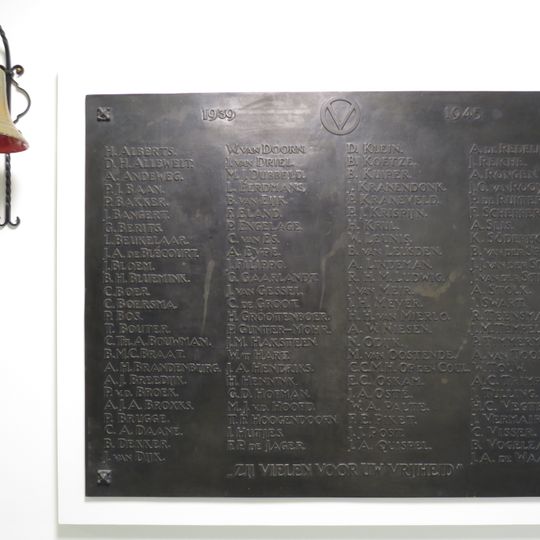 1939 V 1945
H. ALBERTS.
D. H. ALLEWELT.
A. ANDEWEG.
P. J. BAAN.
P. BAKKER.
J. BANGERT.
G. BERITS.
I. BEUKELAAR.
J. A. DE BLÉCOURT.
J. BLOEM.
B. H. BLUEMINK.
C. BOER.
C. BOERSMA.
P. BOS.
T. BOUTER.
C. TH. A. BOUWMAN.
B. M. C. BRAAT.
A. H. BRANDENBURG.
A. J. BREEDIJK.
P. V.D. BROEK.
A. J. A. BROXKS.
P. BRUGGE.
C. A. DAANE.
B. DEKKER.
J. VAN DIJK.
W. VAN DOORN.
J. VAN DRIEL.
M. J. DUBBELD.
L. HERDMANS.
B. VAN EIJK.
F. ELAND.
P. ENGELAGE.
C. VAN ES.
A. EYPE.
J. FILIPPO.
C. GAARLANDT.
J. VAN GESSEL.
C. DE GROOT.
H. GROOTENBOER.
P. GUNTER-MOHR.
J. M. HAKSTEEN.
W. 'T HART.
J. A. HENDRIKS.
H. HENNINK.
C. D. HOFMAN.
M. J. V.D. HOOFD.
T. P. HOOGENDOORN.
J. HUITJES.
E. P. DE JAGER.
D. KLEIN.
B. KOETZE.
B. KUIPER.
J. KRANENDONK.
P. KRANEVELD.
P. J. KRISPIJN.
H. KRUL.
W. LEUNIS.
B. VAN LEUSDEN.
A. LINDEMAN.
R. H. M. LUDWIG.
J. VAN MEIR.
J. H. MEYER.
H. H. VAN MIERLO.
A. W. NIESEN.
N. ODIJK.
M. VAN OOSTENDE.
C. C. M. H. OP EEN COUL.
E. C. OSKAM.
J. A. OSTÉ.
W. A. PALTE.
F. PIKET.
J. POST.
J. A. QUISPEL.
A. DE
J. REKHE.
A. RONGEN
J. C. VAN
P. DE RUITER
P.
A. SIJS.
K.
B. VAN DER
J. VAN DER
J. VAN
A.
J. SWART.
B. TEENSMA
J. M.
P. TIMMER
A. VAN
J. TOL. W.
A. C.
J.
C. C.
J. VERMAIRE
C. VISSER
B.
J. A. DE
„ZIJ VIELEN VOOR UW VRIJHEID"